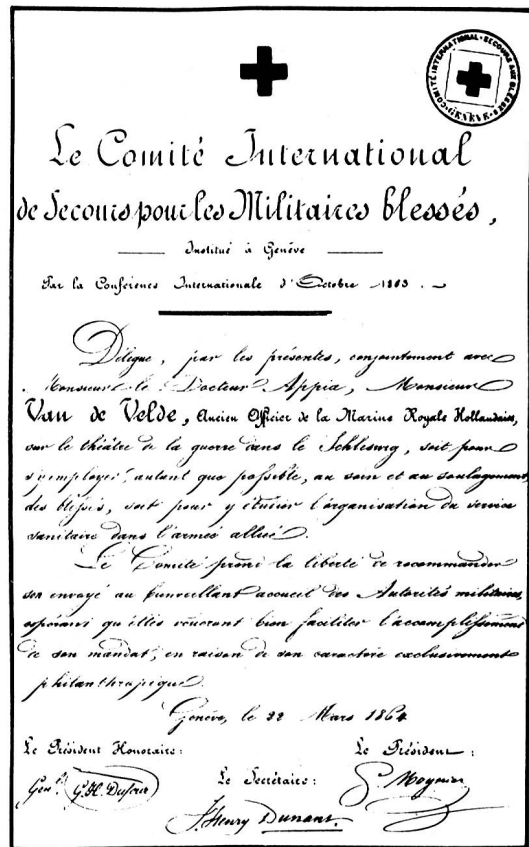 COMITÉ INTERNATIONAL · SECOURS AUX BLESSÉS · GENÈVE
Le Comité International
de Secours pour les Militaires blessés,
Institué à Genève
Par la Conférence Internationale d'Octobre 1863.
Délègue, par les présentes, conjointement avec
Monsieur le Docteur Appia, Monsieur
Van de Velde, Ancien Officier de la Marine Royale Hollandaise,
sur le théâtre de la guerre dans le Schleswig, soit pour
s'employer, autant que possible, au soin et au soulagement
des blessés, soit pour y étudier l'organisation du service
sanitaire dans l'armée alliée.
Le Comité prend la liberté de recommander
son envoyé au bienveillant accueil des Autorités militaires,
espérant qu'elles voudront bien faciliter l'accomplissement
de son mandat, en raison de son caractère exclusivement
philanthropique.
Genève, le 22 Mars 1864
Le Président Honoraire: Le Président:
Gen'l. G. H. Dufour Le Secrétaire: G. Moynier
J. Henry Dunant.